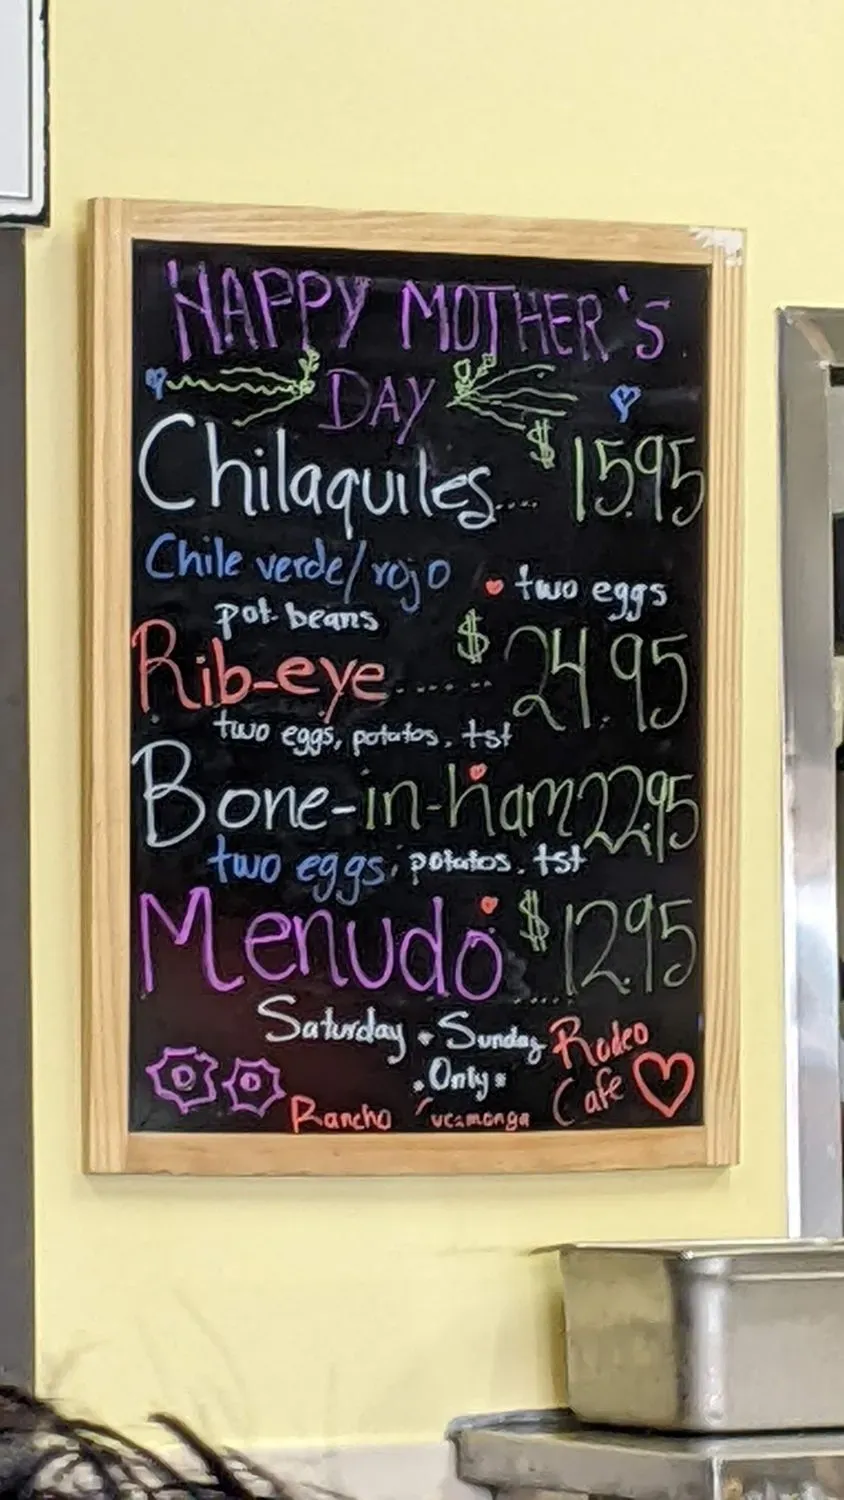 HAPPY MOTHER'S
DAY
Chilaquiles.... $15.95
Chile verde/rojo • two eggs
pot beans
Rib-eye...... $24.95
two eggs, potatos, tst
Bone-in-ham 22.95
two eggs, potatos. tst
Menudo ..... $12.95
Saturday • Sunday
•Only•
Rodeo
Cafe
Rancho Cucamonga